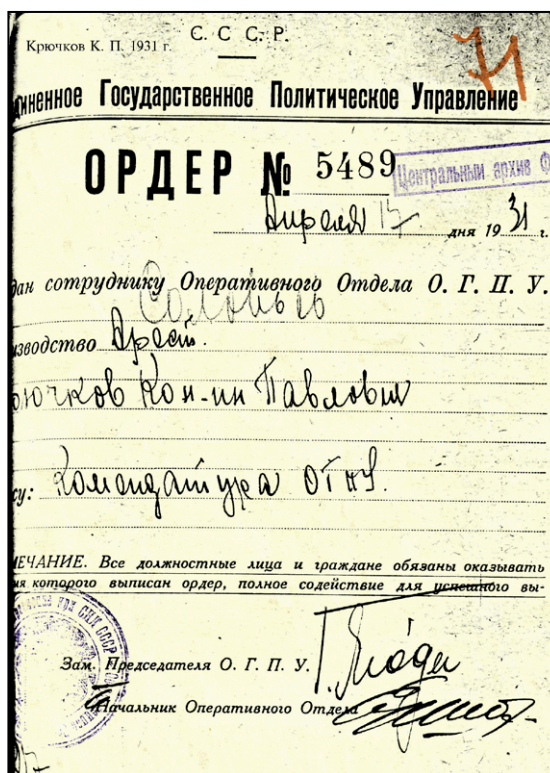 Крючков К. П. 1931 г.
С. С. С. Р.
71
иненное Государственное Политическое Управление
ОРДЕР № 5489
Центральный архив Ф
Апреля 17 дня 1931 г.
дан сотруднику Оперативного Отдела О. Г. П. У.
изводство Арест.
рючков Кон-ин Павлович
су: Комендатура ОГПУ.
МЕЧАНИЕ. Все должностные лица и граждане обязаны оказывать
ия которого выписан ордер, полное содействие для успешного вы-
при СНК СССР
Зам. Председателя О. Г. П. У.
Начальник Оперативного Отдела